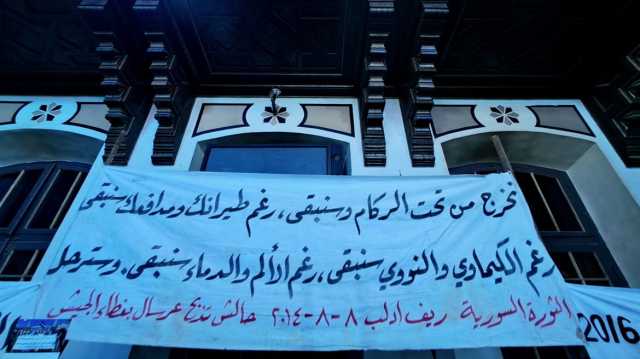 نخرج من تحت الركام وسنبقى، رغم طيرانك ومدافعك سنبقى
رغم الكيماوي والنووي سنبقى، رغم الألم والدماء سنبقى. وسترحل
الثورة السورية ريف ادلب ٨-٨-٢٠١٤ حالش تذبح عرسال بغطاء الجيش
2016